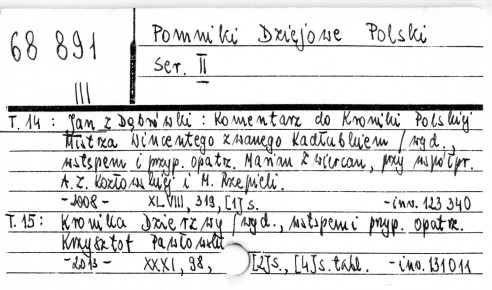 68 891
III
Pomniki Dziejowe Polski
Ser. II
T. 14 : Jan z Dąbrówki : Komentarz do Kroniki Polskiej
Mistrza Wincentego zwanego Kadłubkiem / wyd.,
wstępem i przyp. opatrz. Marian Zwiercan, przy współpr.
A. Z. Kozłowskiej i M. Rzepieli.
- 2008 - XLVIII, 319, [1] s. - inw. 123 340
T. 15 : Kronika Dzierzwy / wyd., wstępem i przyp. opatrz.
Krzysztof Pawłowski
- 2013 - XXXI, 98, [2] s., [4] s. tabl. - inw. 131011